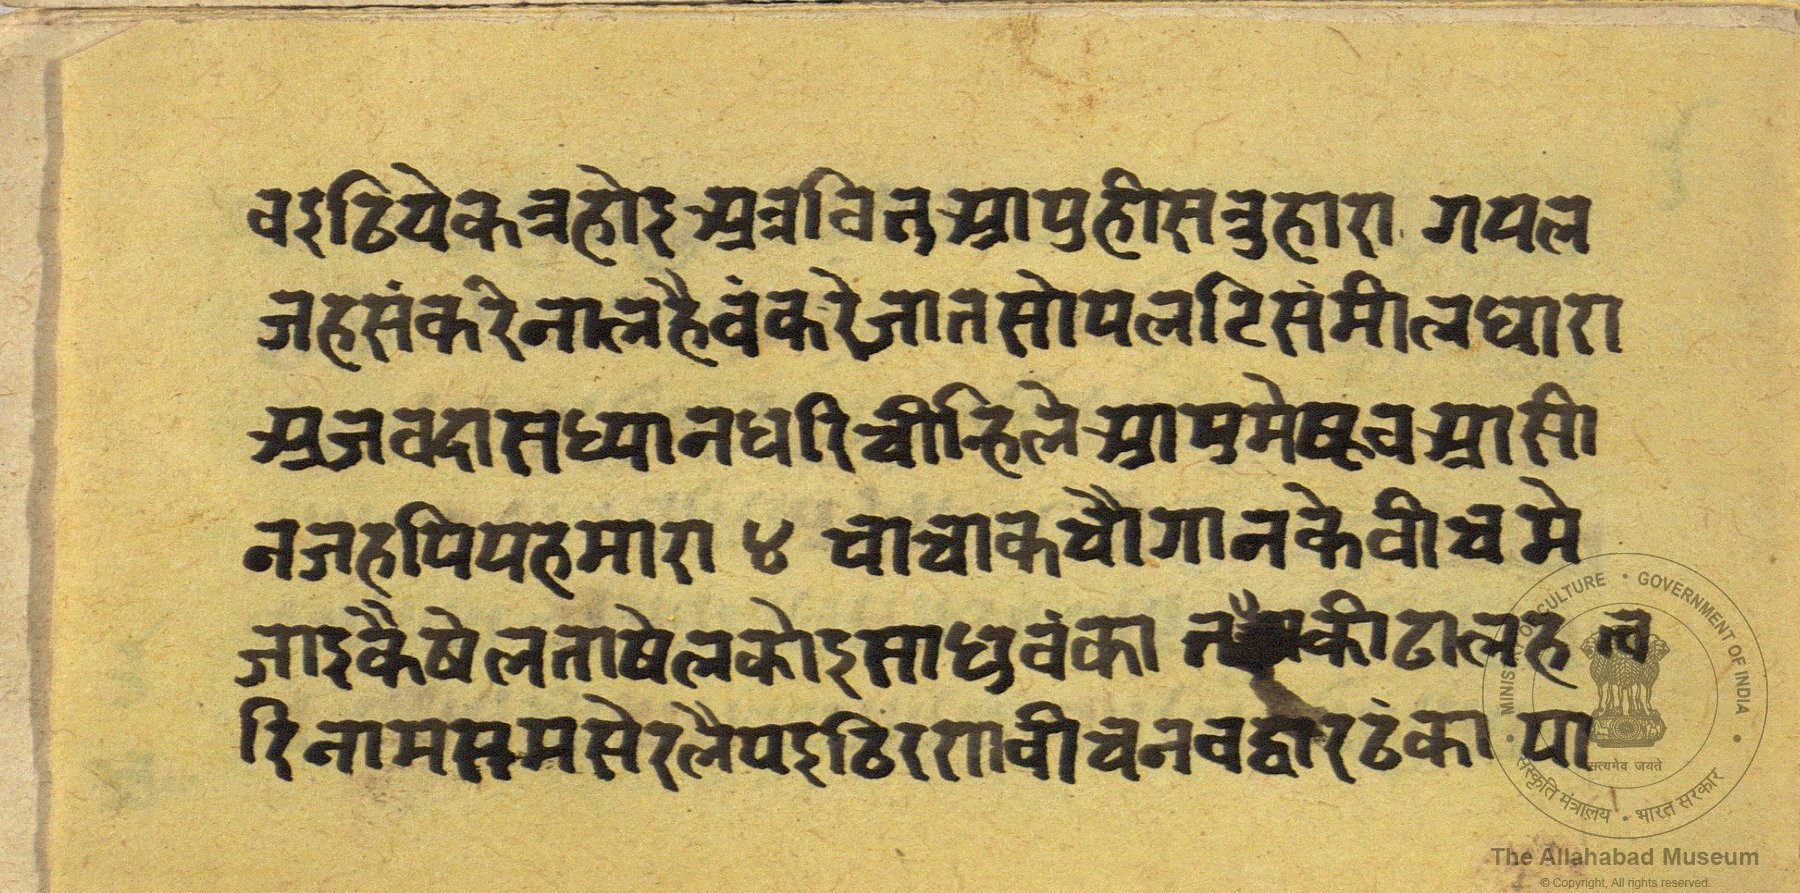 वइठियेकत्रहोइअत्रवितआपुहीसत्रुहारा गयल
जहसंकरेनालहैवंकरेजातसोपलटिसंमीलधारा
अजबदासध्यानधरिचीन्हिलेआपुमे आसी
नजहपियहमारा ४ चाचाकचौगानकेवीचमे
जाइकैषेलताषेलकोइसाधुवंका कीढालह
रिनामसमसेरलैपइठिरगावीचनवद्वारढंका पा
MINISTRY OF CULTURE • GOVERNMENT OF INDIA
संस्कृति मंत्रालय • भारत सरकार
सत्यमेव जयते
The Allahabad Museum
© Copyright, All rights reserved.